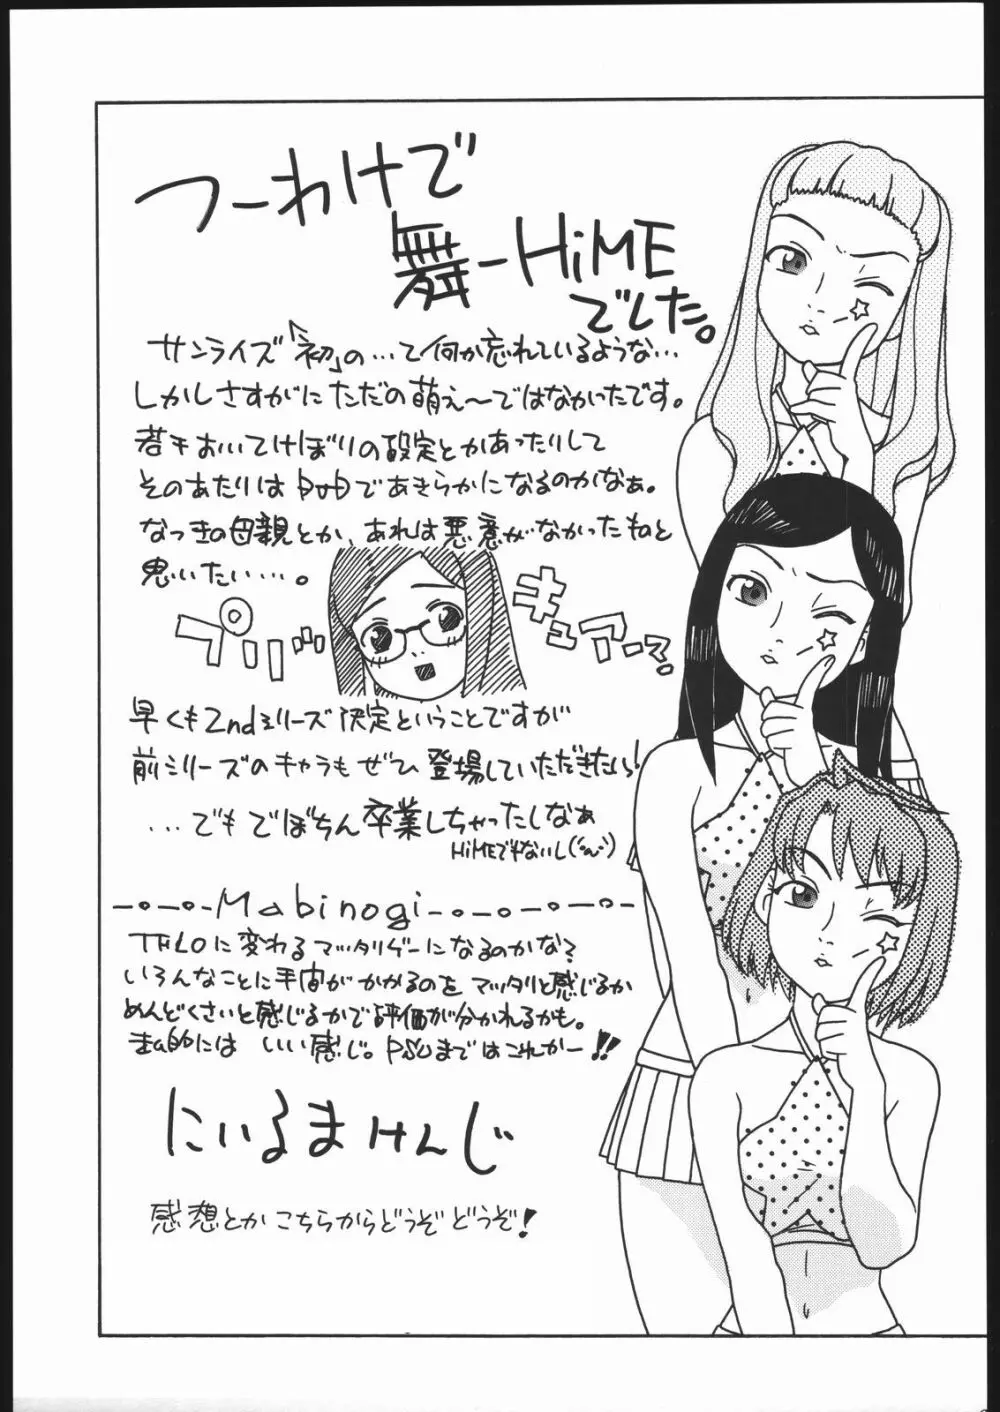 つーわけで
舞-HiME
でした。
サンライズ「初」の…て何か忘れているような…
しかしさすがにただの萌え〜ではなかったです。
若干おいてけぼりの設定とかあったりして
そのあたりはDVDであきらかになるのかなぁ。
なつきの母親とか、あれは悪意がなかったねと
思いたい…。
プリガ
キュアーマ。
早くも2ndシリーズ決定ということですが
前シリーズのキャラもぜひ登場していただきたいっ!
…でもでぼちん卒業しちゃったしなぁ
HiMEでもないし
Mabinogi
に変わるマッタリゲーになるのかな?
いろんなことに手間がかかるのをマッタリと感じるか
めんどくさいと感じるかで評価が分かれるかも。
まぁ的には いい感じ。PSUまではこれかー!!
にいるまけんじ
感想とかこちらからどうぞどうぞ!